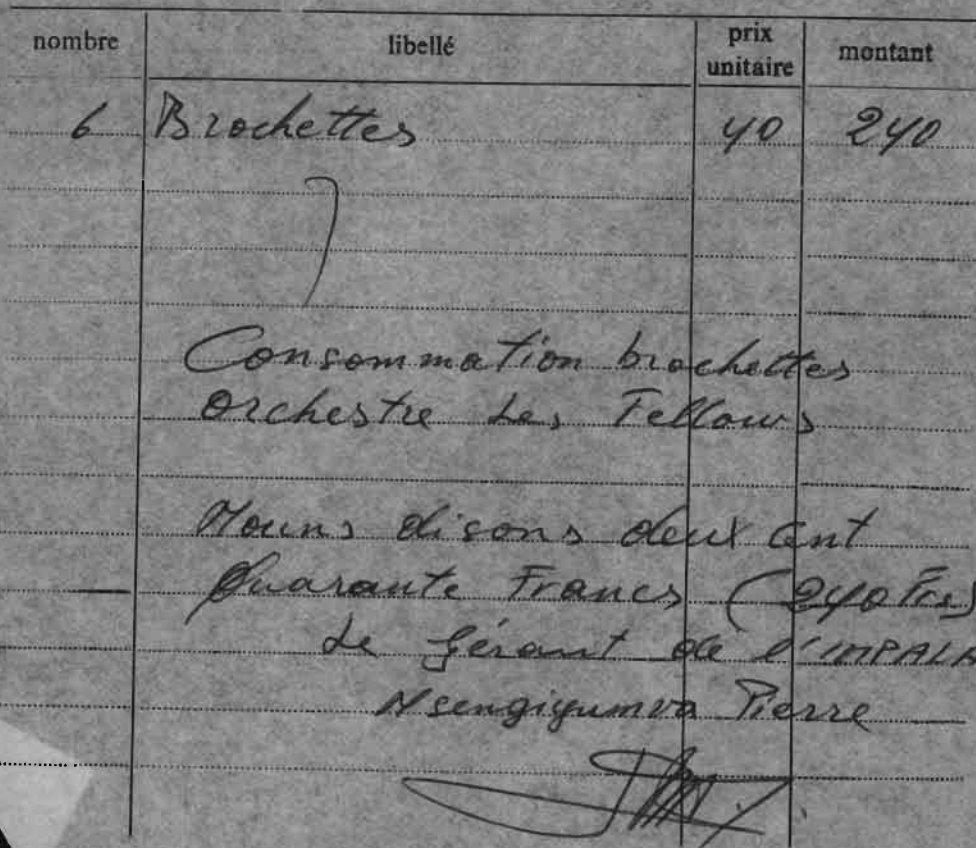 nombre libellé prix unitaire montant
6 Brochettes 40 240
Consommation brochettes
Orchestre Les Fellows
Nouns disons deux cent
Quarante Francs (240 Frs)
Le Gérant de l'IMPALA
Nsengiyumva Pierre